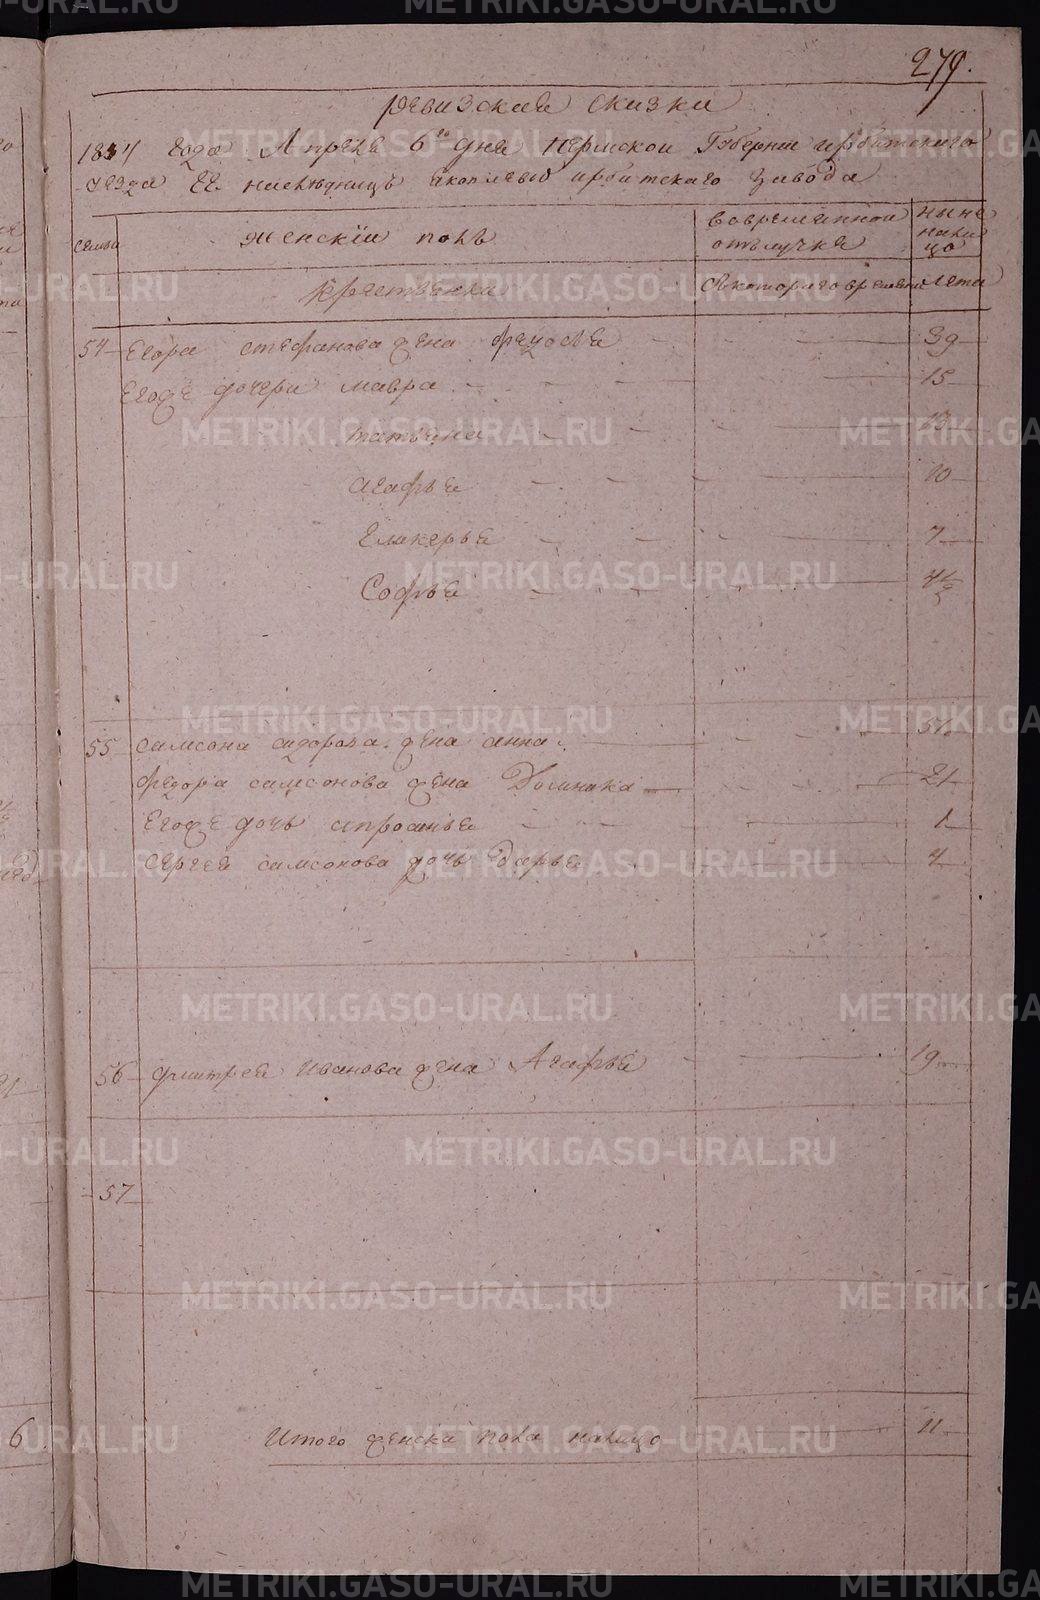 279.
ревизские сказки
1834 года Апреля 6го дня пермской Губернии ирбитского
уезда наследницъ ирбитского завода
семьи
женскiй полъ
вовременной отълучке
ныне налицо
крестьянка
Скотораго времени
лета
54 Егора стефанова жена федосье 39
Егоже дочери мавра 15
татьяна 13
агафье 10
Гликерье 7
Софье 4 1/2
55 самсона сидорова жена анна 51
федора самсонова жена Домника 21
Егоже дочь апросинье 1
сергея самсонова дочь Дарье 4
56 дмитрея Иванова жена Агафье 19
57
Итого женска пола налицо 11
6
METRIKI.GASO-URAL.RU